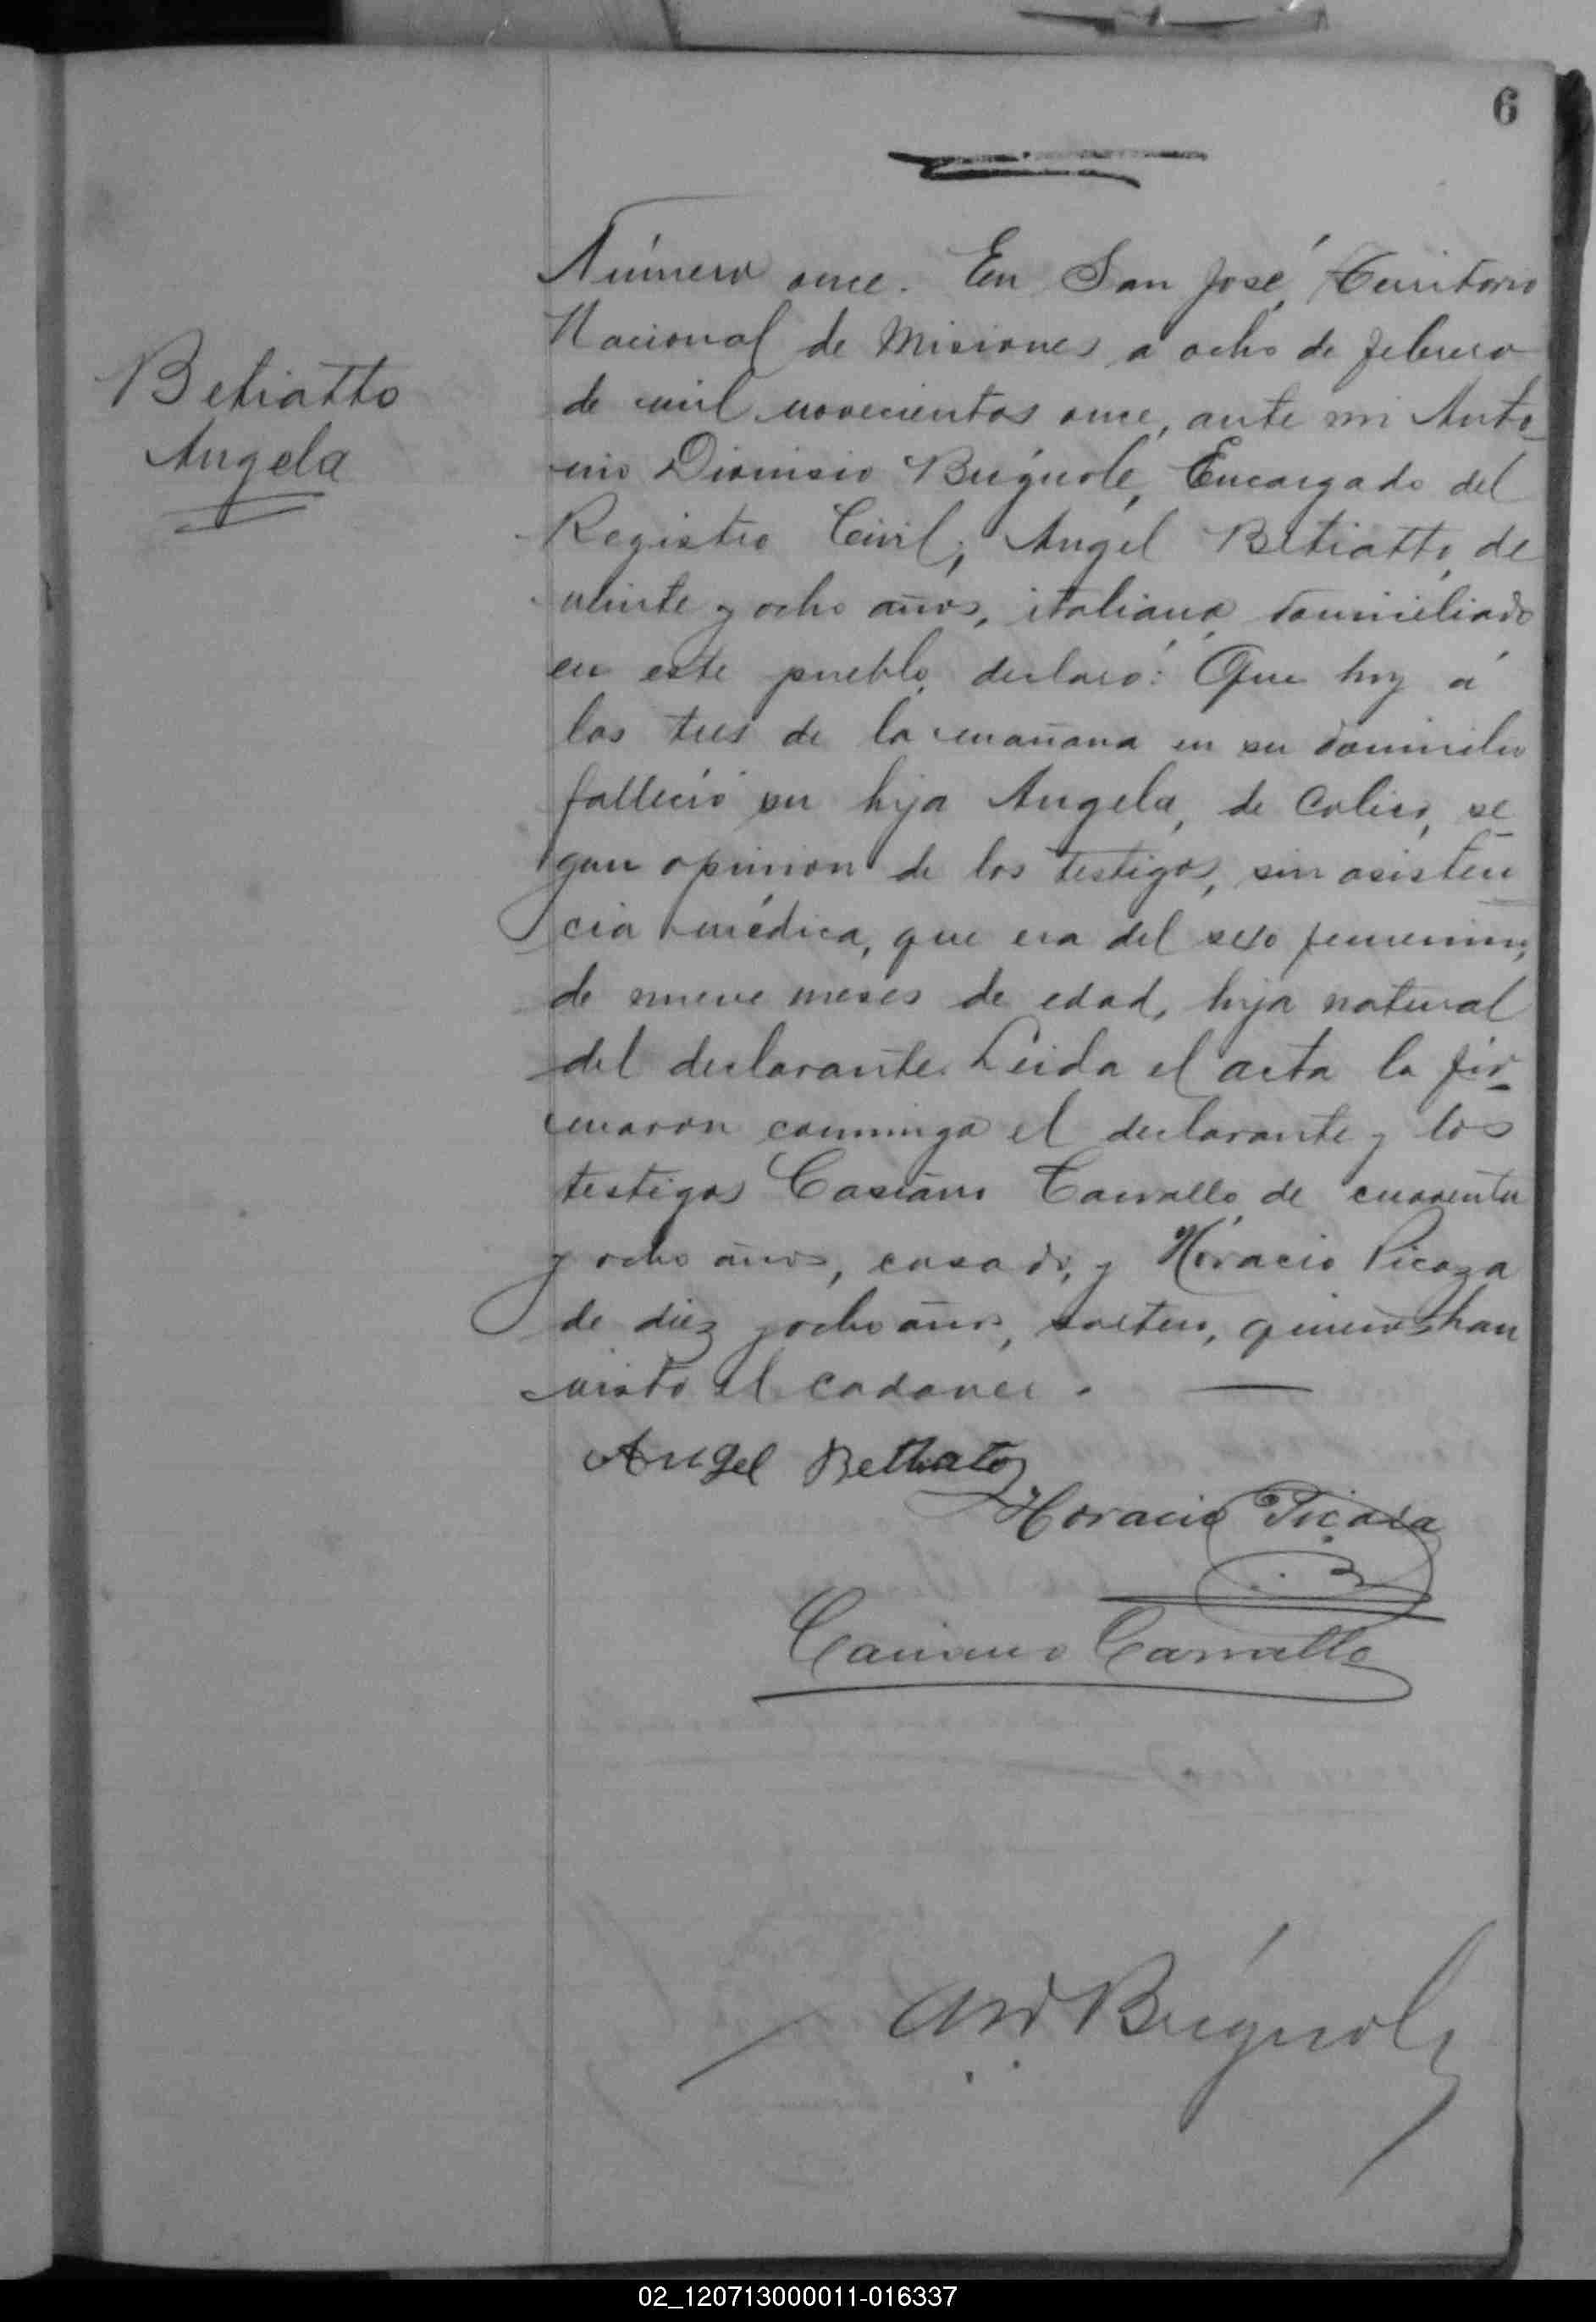 6
Betiatto
Angela
Número once. En San José, Territorio
Nacional de Misiones a ocho de febrero
de mil novecientos once, ante mi Anto-
nio Dionisio Bugnole, Encargado del
Registro Civil, Angel Betiatto, de
veinte y ocho años, italiano, domiciliado
en este pueblo, declaró: Que hoy á
las tres de la mañana en su domicilio
falleció su hija Angela, de Colico, se
gun opinion de los testigos, sin asisten
cia médica, que era del sexo femenino,
de nueve meses de edad, hija natural
del declarante. Leida el acta la fir-
maron conmigo el declarante y los
testigos Casiano Carvallo de cuarenta
y ocho años, casado, y Horacio Picaza
de diez y ocho años, soltero, quienes han
visto el cadaver.
Angel Bethato
Horacio Picaza
Casiano Carvallo
02_120713000011-016337